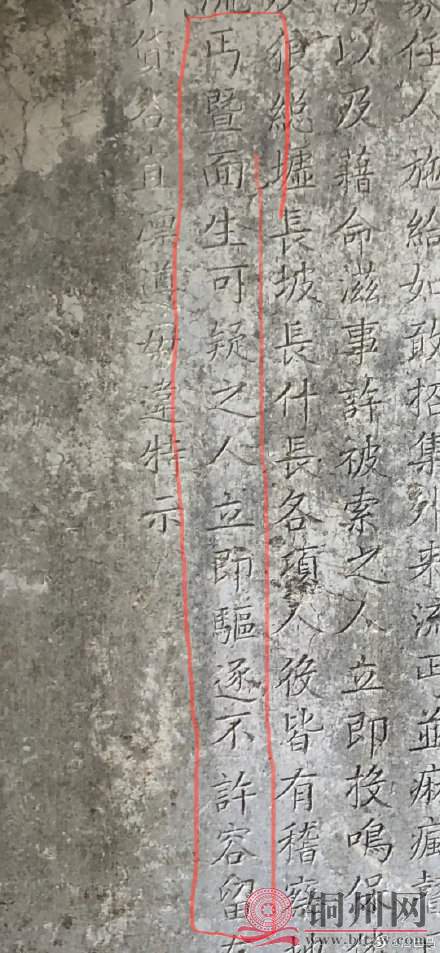 家任人施給如敢招集外来流丐並麻瘋
以及藉命滋事許被索之人立即投鳴保
狼總墟長坡長什長各項人役皆有稽察地
流丐暨面生可疑之人立即驅逐不許容留
不貸各宜凛遵毋違特示
铜州网
www.bltzw.com